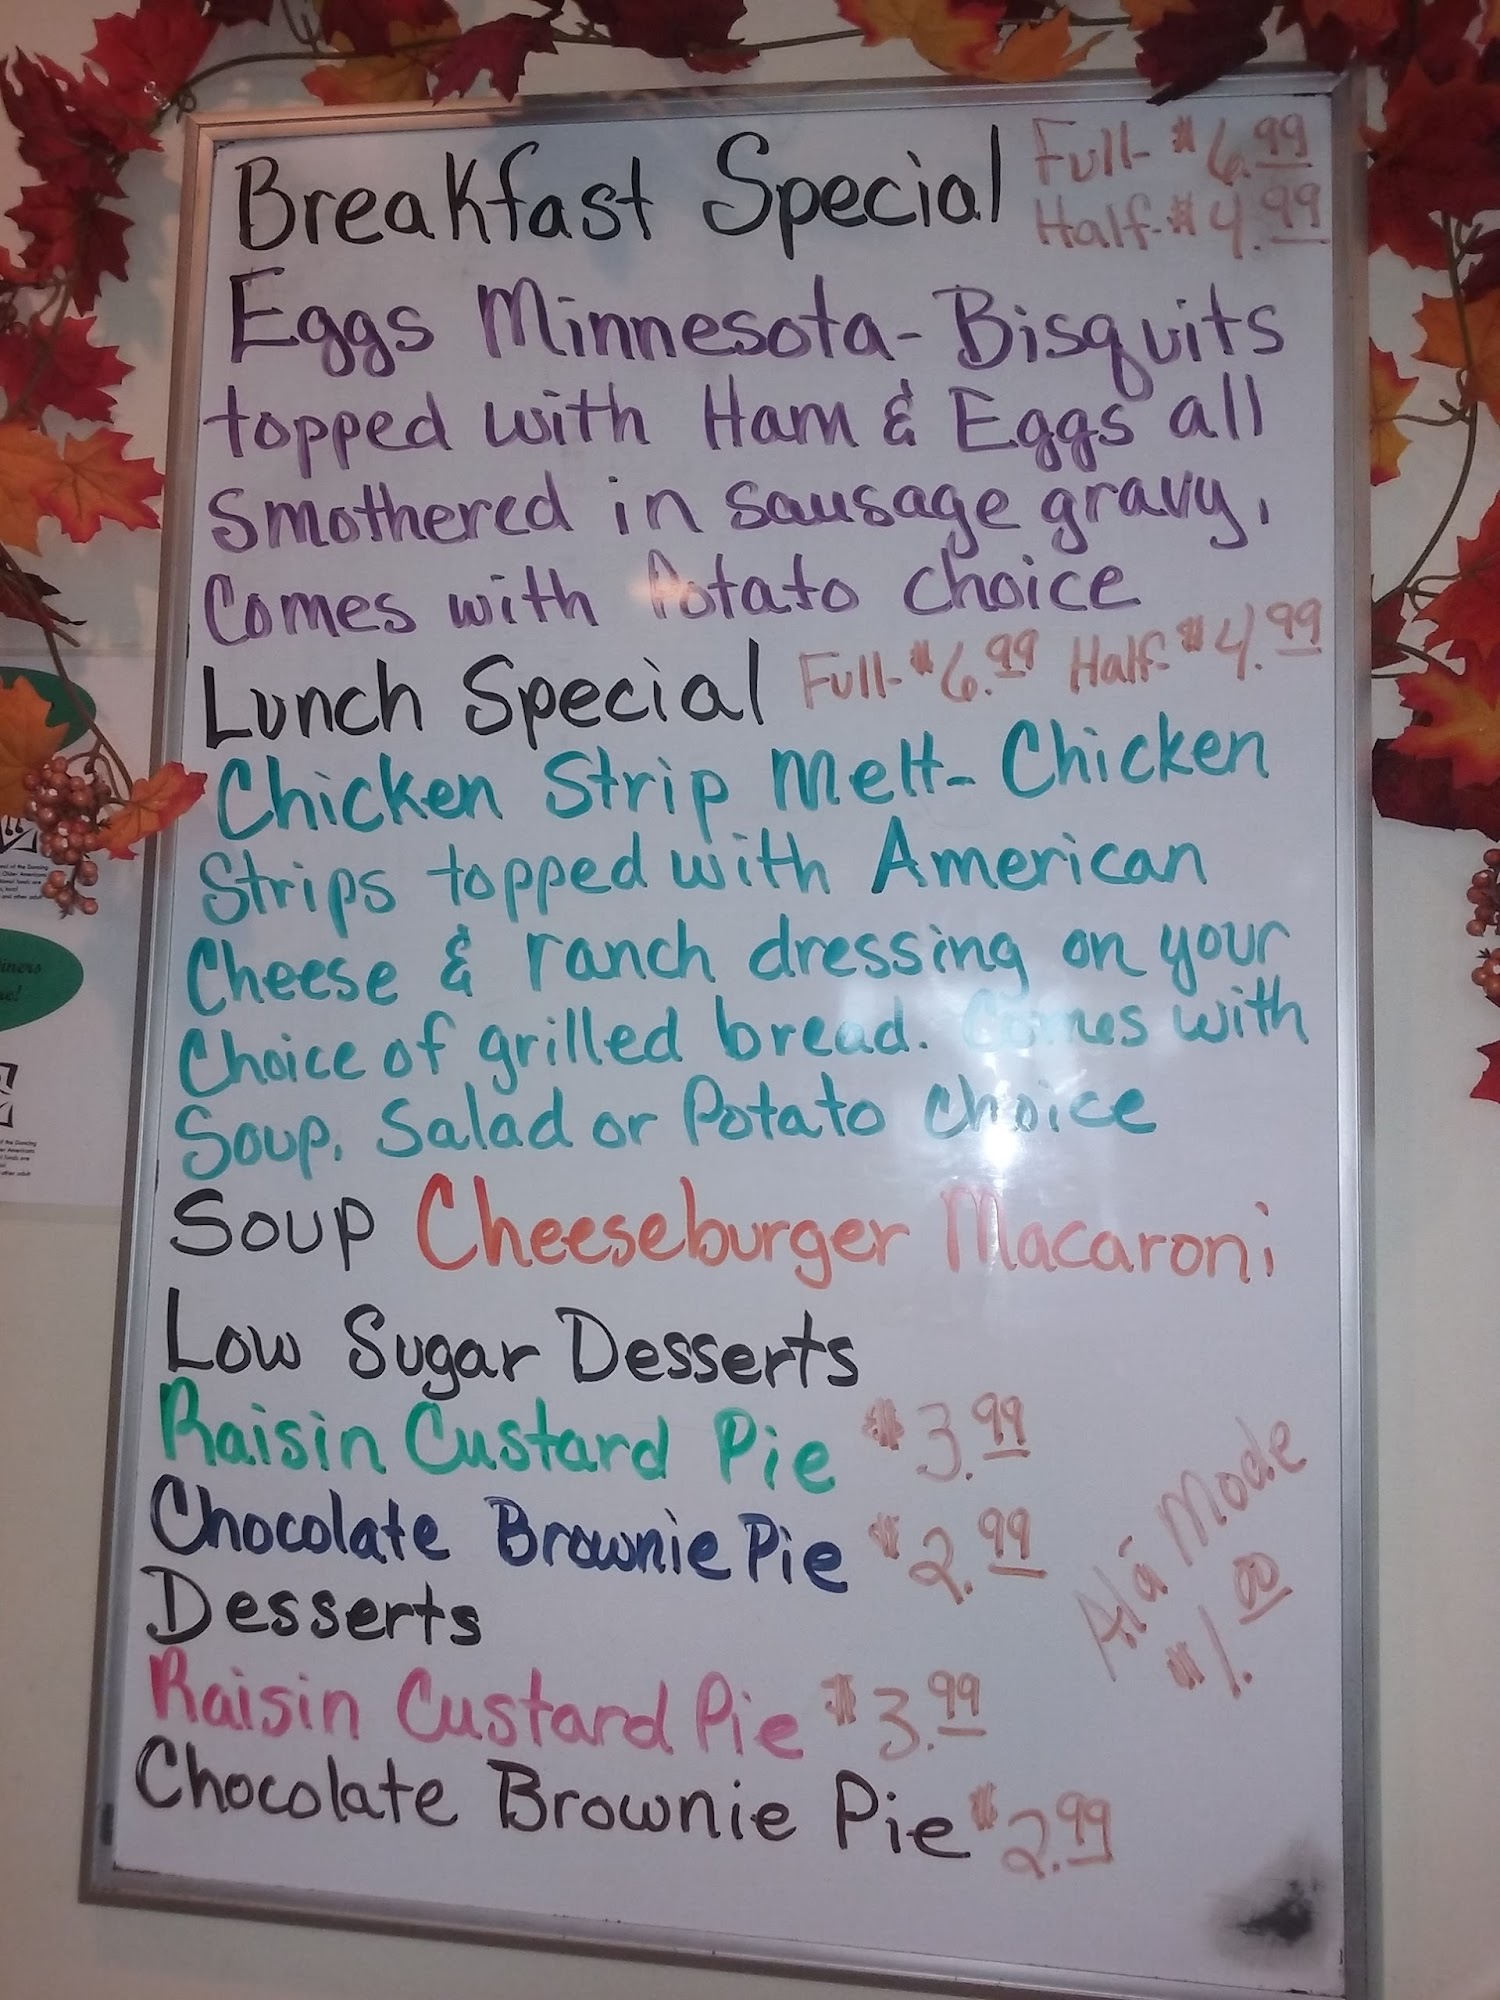 Breakfast Special Full-$6.99
Half-$4.99
Eggs Minnesota-Bisquits
topped with Ham & Eggs all
Smothered in sausage gravy,
Comes with Potato choice
Lunch Special Full-$6.99 Half-$4.99
Chicken Strip Melt- Chicken
Strips topped with American
Cheese & ranch dressing on your
Choice of grilled bread. Comes with
Soup, Salad or Potato choice
Soup Cheeseburger Macaroni
Low Sugar Desserts
Raisin Custard Pie $3.99
Chocolate Brownie Pie $2.99
Desserts
Raisin Custard Pie $3.99
Chocolate Brownie Pie $2.99
Alá Mode
$1.00